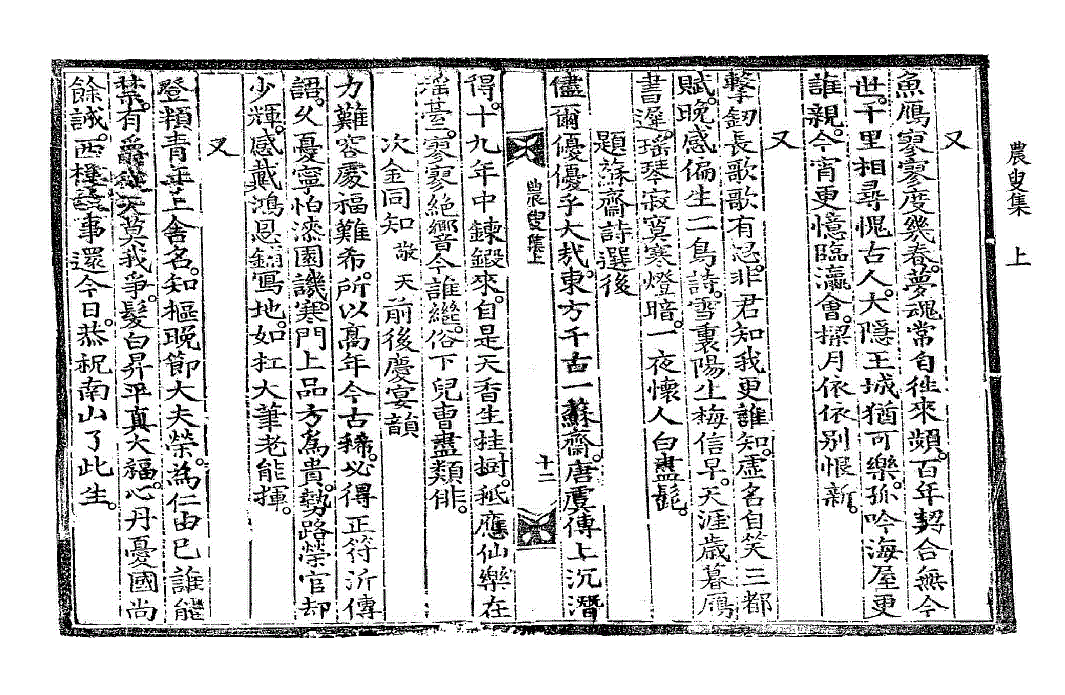 農叟集 上
又
魚鴈寥寥度幾春。夢魂常自徃來頻。百年契合無今
世。千里相尋愧古人。大隱王城猶可樂。孤吟海屋更
誰親。今宵更憶臨瀛會。擢月依依别恨新。
又
擊釰長歌歌有思。非君知我更誰知。虛名自笑三都
賦。晩感偏生二鳥詩。雪裏陽生梅信早。天涯歲暮鴈
書遲。瑶琴寂寞寒燈暗。一夜懷人白盡髭。
題蘇齋詩選後
儘爾優優乎大㢤。東方千古一蘇齋。唐虞傳上沉潛
農叟集上
十二
得。十九年中鍊鍛來。自是天香生桂樹。秪應仙樂在
淫㞷。寥寥絶響今誰繼。俗下兒曺盡類俳。
次金同知 敬天 前後慶宴韻
力難容處福難希。所以高年今古稀。必得正符沂傳
語。久憂寧怕漆園譏。寒門上品方為貴。勢路榮官却
少輝。感戴鴻恩鎖寫地。如扛大筆老能揮。
又
登顂青年上舍名。知樞晩節大夫榮。為仁由已誰能
禁。有爵從天莫我爭。髮白昇平真大福。心丹憂國尚
餘誠。西樓 事還今日。恭祝南山了此生。